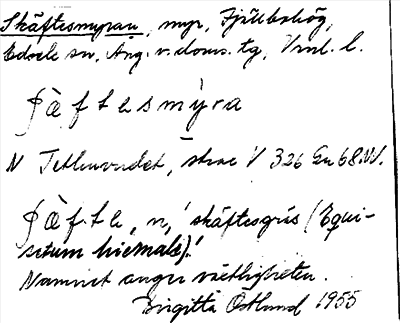 Skäftesmyran, myr, Fjällbohög,
Edsele sn, Ång. v. doms. tg, Vnl. l.
ʃæ̀ftesmýra
N Tethuvudet, strax V 326 Gu 68 NV.
ʃæ̀fte, n, 'skäftesgräs (Equi-
setum hiemale)'.
Namnet anger växtligheten.
Birgitta Östlund 1955